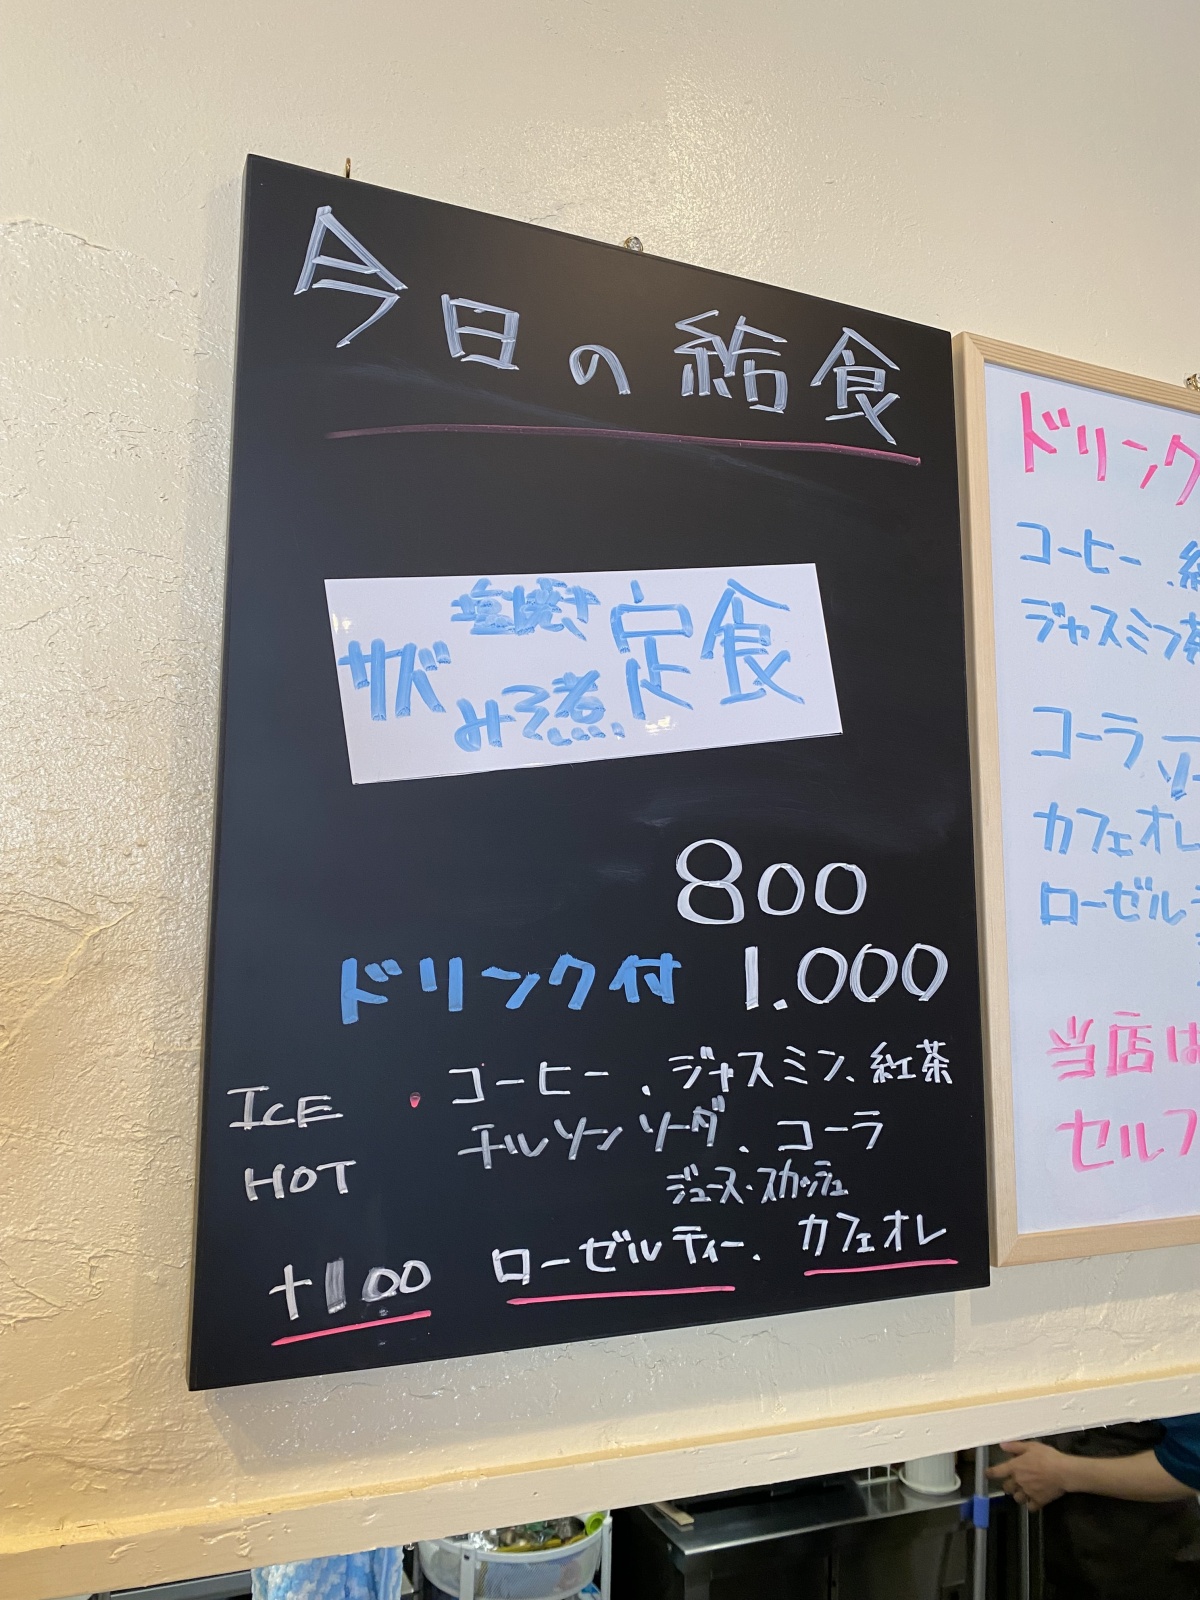 今日の給食
サバ 塩焼き みそ煮 定食
800
ドリンク付 1.000
ICE
HOT
・コーヒー、ジャスミン、紅茶
チルソンソーダ、コーラ
ジュース・スカッシュ
+100 ローゼルティー、カフェオレ
ドリンク
コーヒー、
ジャスミン茶
コーラ
カフェオレ
ローゼル
当店は
セルフ